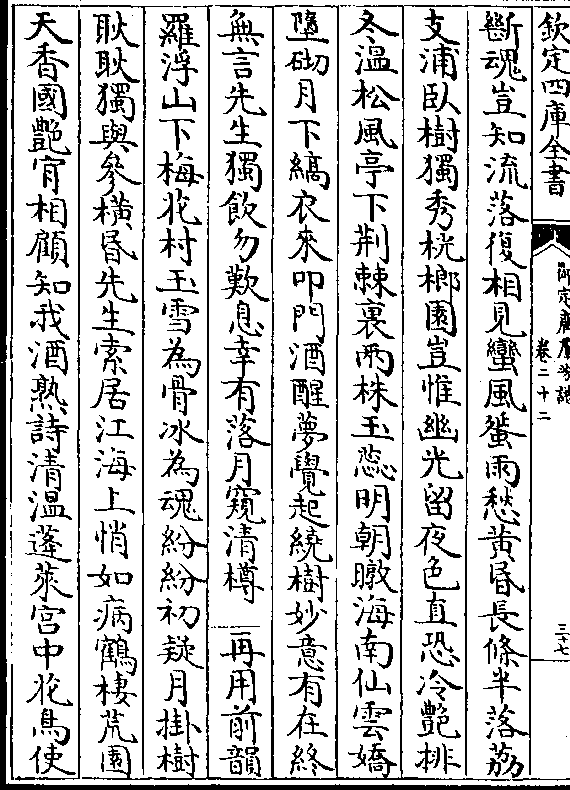 欽定四庫全書
御定廣羣芳譜
卷二十二
三十七
斷魂豈知流落復相見蠻風蜑雨愁黃昏長條半落荔
支浦臥樹獨秀桄榔園豈惟幽光留夜色直恐冷艷排
冬溫松風亭下荆棘裏兩株玉蕊明朝暾海南仙雲嬌
墮砌月下縞衣來叩門酒醒夢覺起繞樹妙意有在終
無言先生獨飲勿歎息幸有落月窺清樽 再用前韻
羅浮山下梅花村玉雪為骨冰為魂紛紛初疑月掛樹
耿耿獨與參橫昏先生索居江海上悄如病鶴棲荒園
天香國艷肎相顧知我酒熟詩清温蓬萊宮中花鳥使